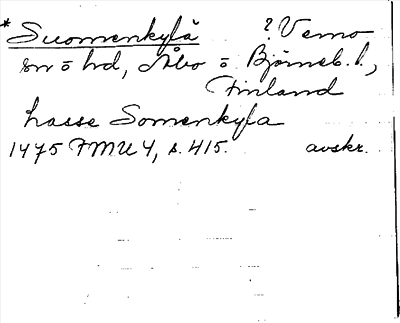 * Suomenkylä ? Vemo
sn o hd, Åbo o Björneb. l.,
Finland
Lasse Somenkyla
1475 FMU 4, s. 415. avskr.